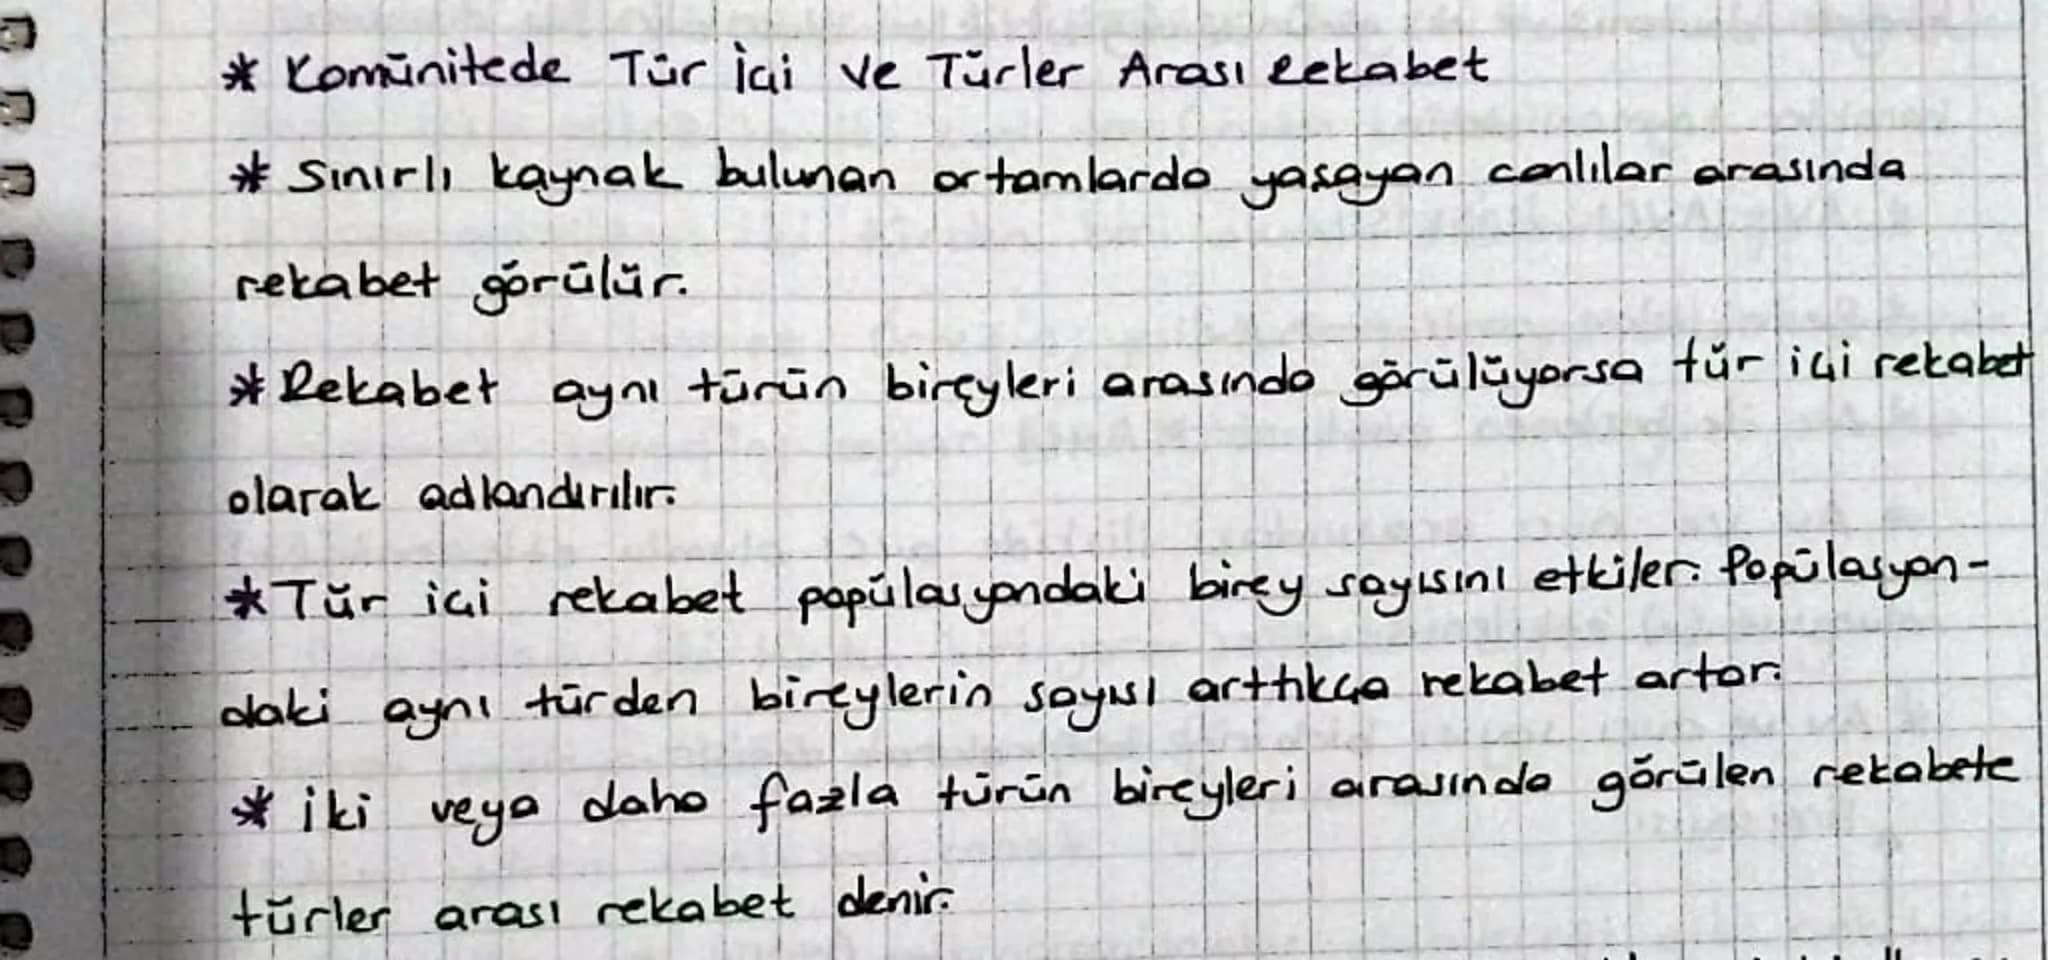 * Komünitede Tür İçi ve Türler Arası Rekabet
* Sınırlı kaynak bulunan ortamlarda yaşayan canlılar arasında
rekabet görülür.
* Rekabet aynı türün bireyleri arasında görülüyorsa tür içi rekabet
olarak adlandırılır.
* Tür içi rekabet popülasyondaki birey sayısını etkiler. Popülasyon-
daki aynı türden bireylerin sayısı arttıkça rekabet artar.
* İki veya daha fazla türün bireyleri arasında görülen rekabete
türler arası rekabet denir.